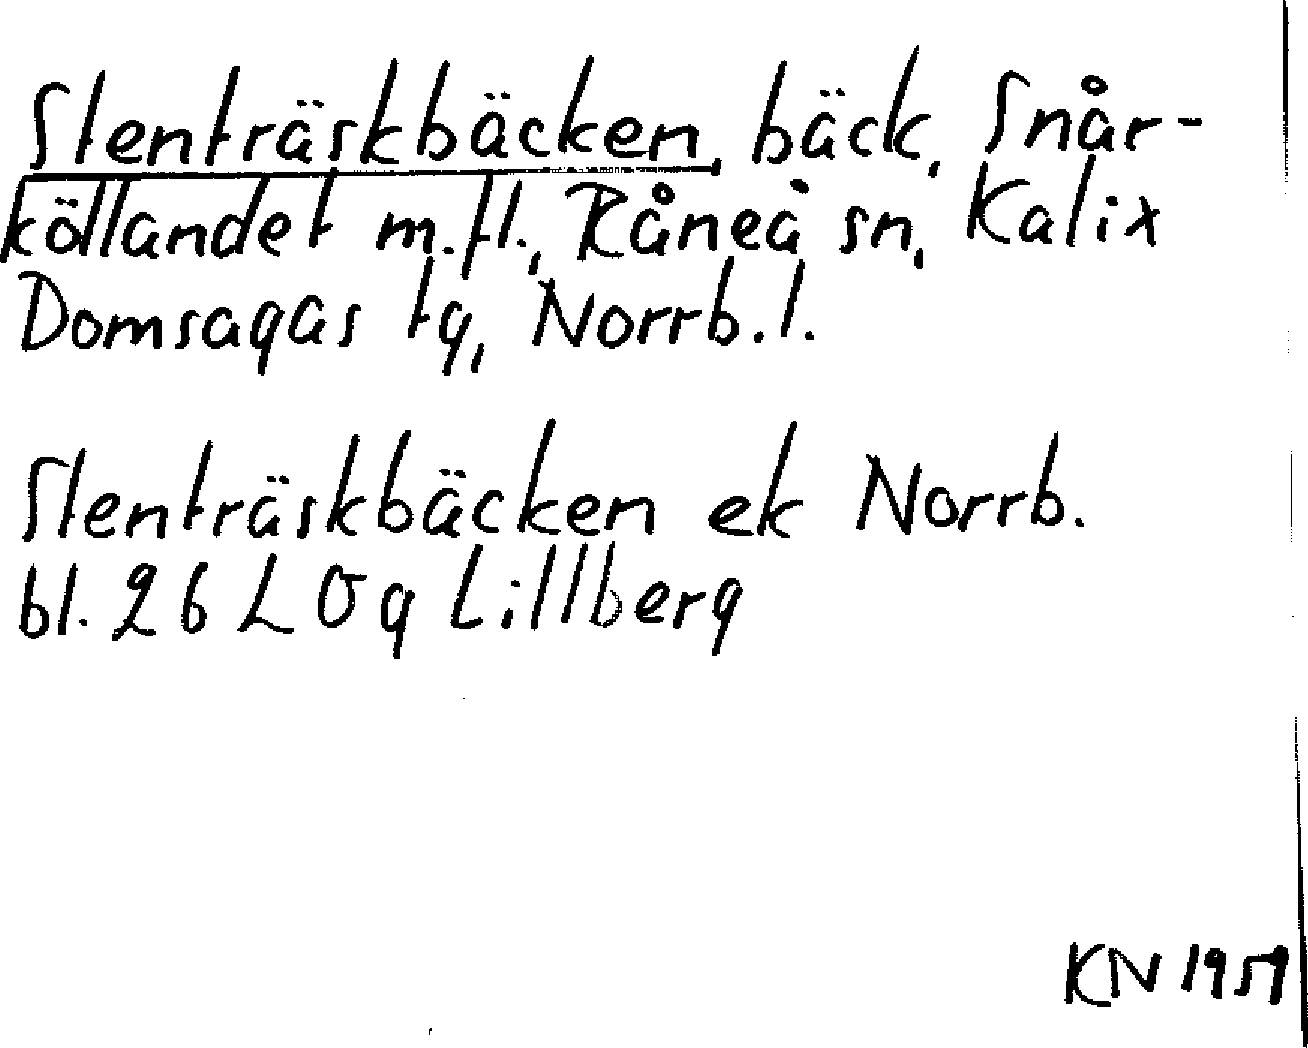 Stenträskbäcken, bäck, Snår-
köllandet m.fl., Råneå sn, Kalix
Domsagas tg, Norrb.l.
Stenträskbäcken ek Norrb.
bl. 26 L Ög Lillberg
KN 1959